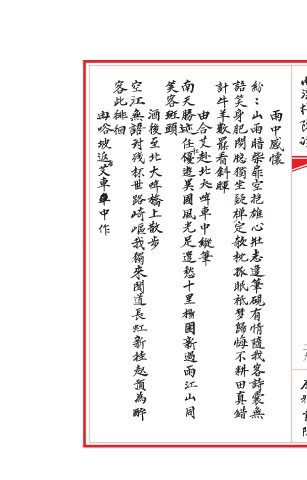 雨中感懷
紛紛山雨暗柴扉空抱雄心壯志違筆硯有情隨我客詩囊無
語笑身肥閑聽獨坐疑棋定欹枕孤眠祇夢歸悔不耕田真錯
計牛羊數罷看斜暉
由合艾赴北大年車中縱筆
南天勝迹任優遊異國風光足遣愁十里橡園新過雨江山同
笑客斑頭
酒後至北大年橋上散步
空江無語對殘杯世路崎嶇我獨來聞道長虹新挂起預為醉
客此徘徊
由喀坡返合艾車中作